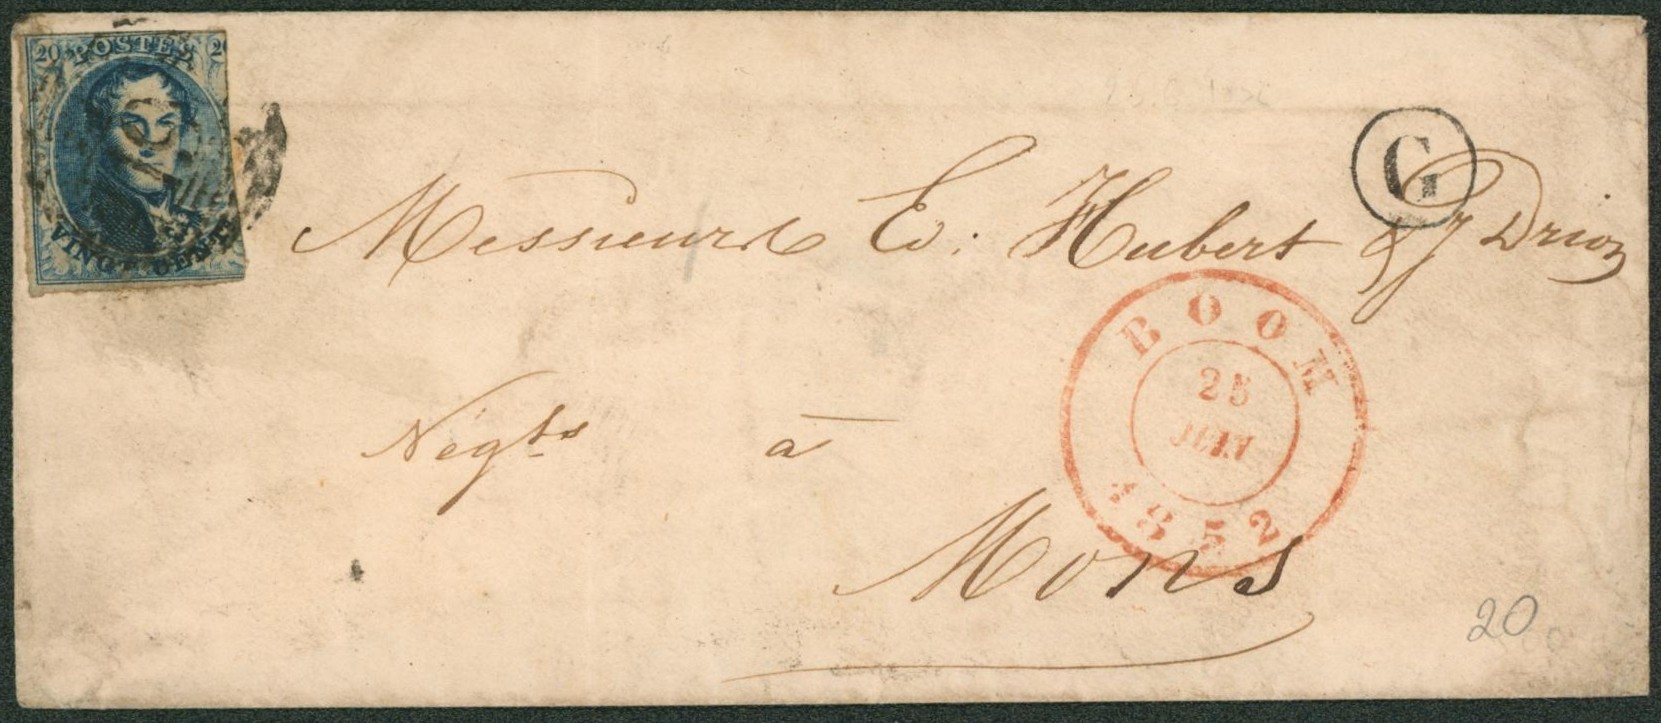 20 POSTES 20
VINGT CENT
G
Messieurs E. Hubert & J Drion
BOOM
25
JUIN
1852
Négts à
Mons
20